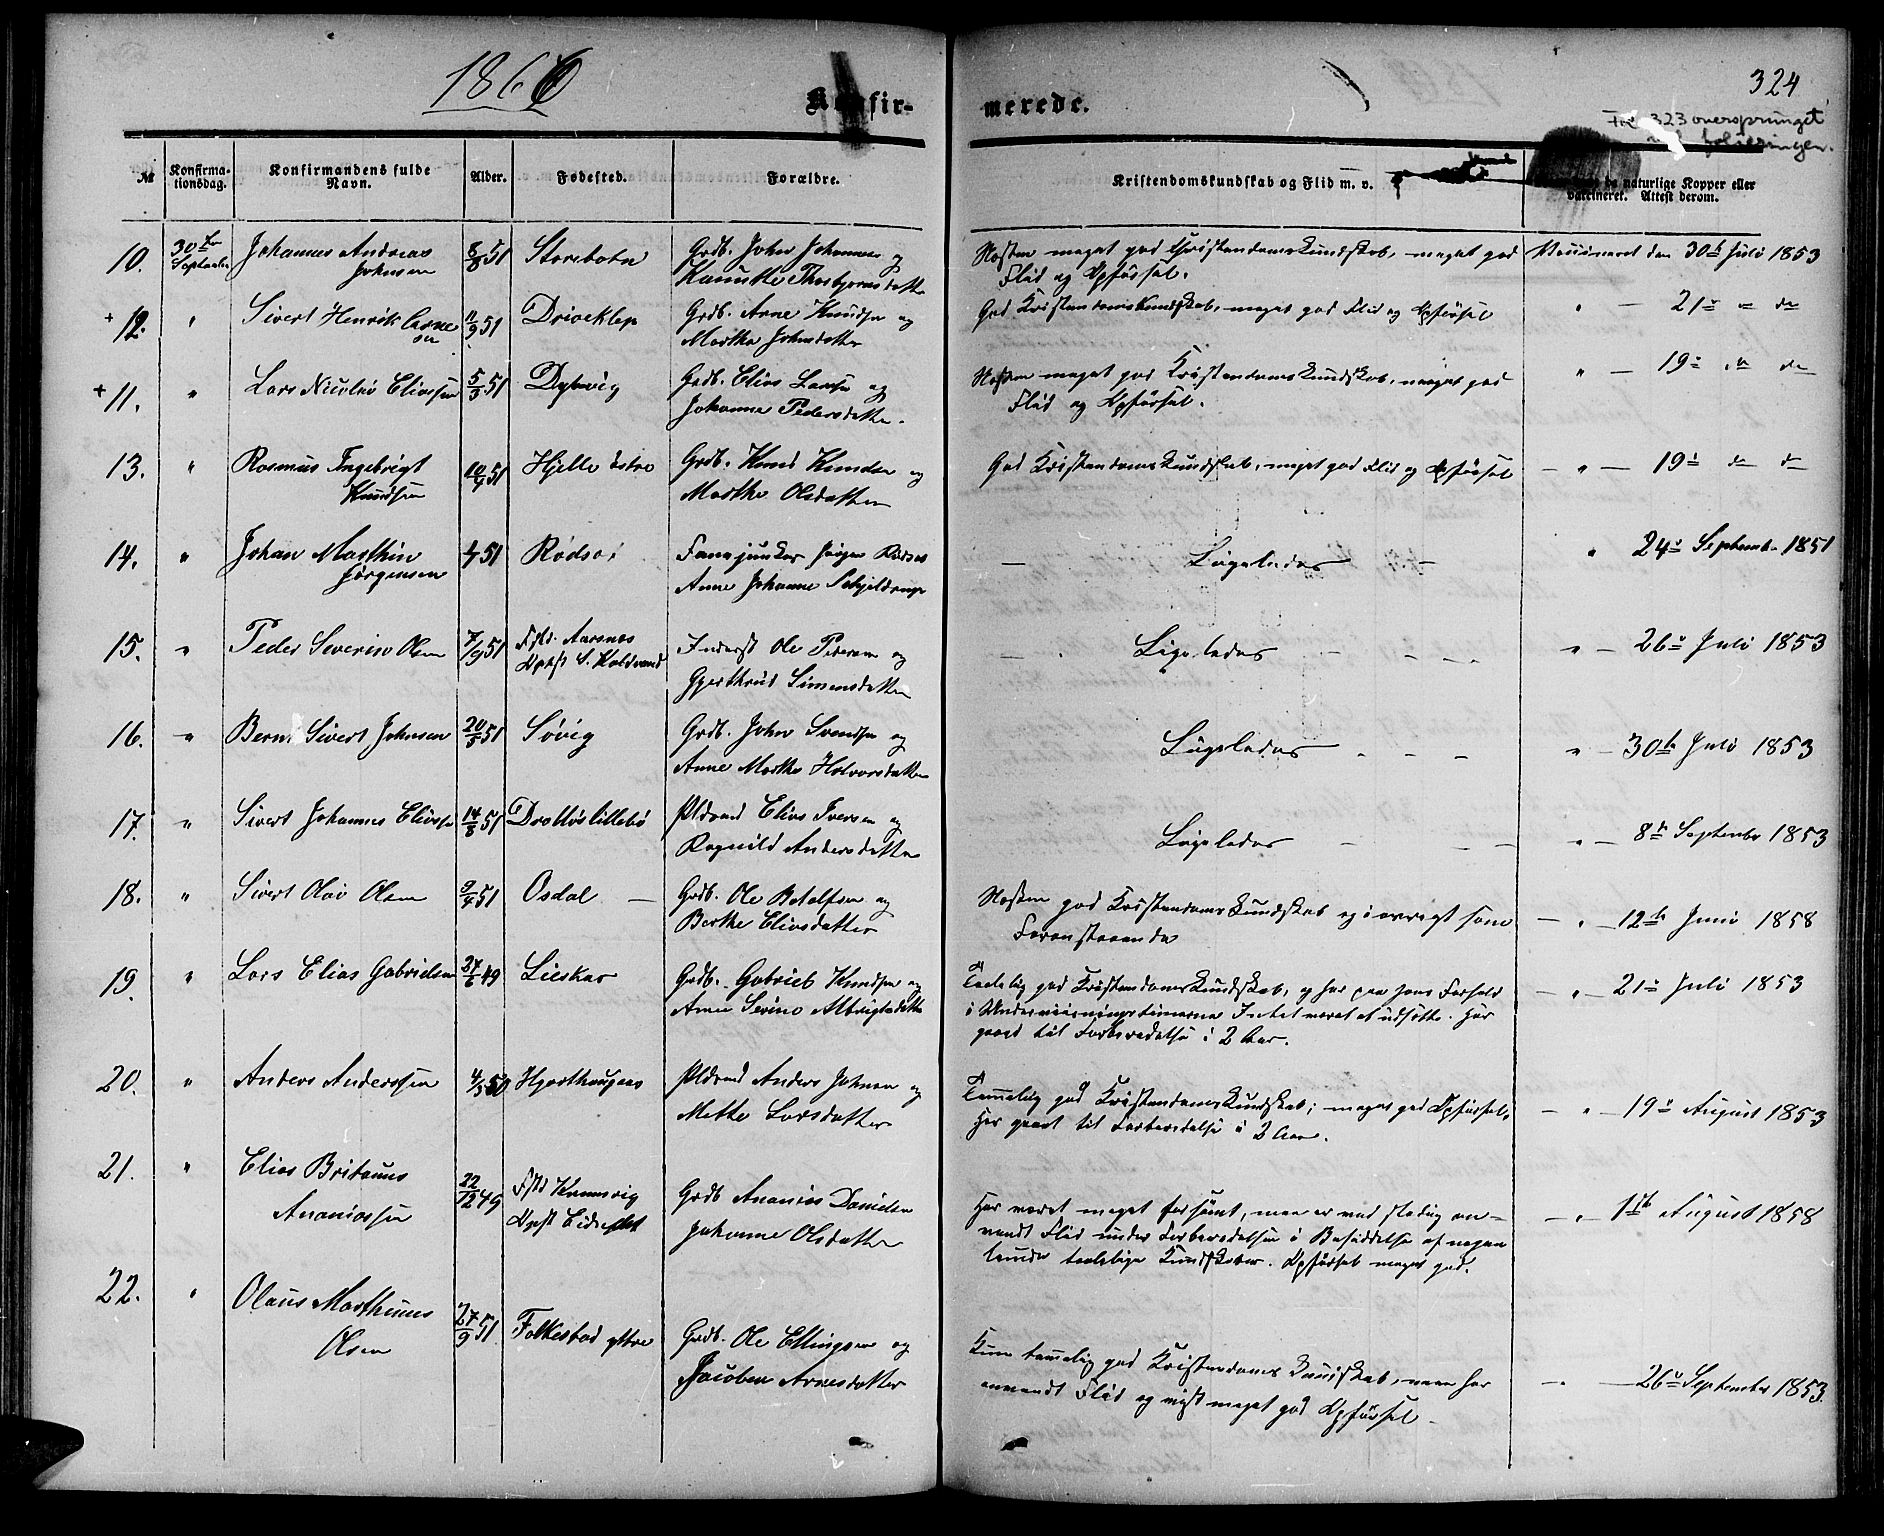 1866
Konfir-
merede.
324
Fol 323 overspringet
ved folieringen.
№
Konfirma-
tionsdag.
Konfirmandens fulde
Navn.
Alder.
Fødested.
Forældre.
Kristendomskundskab og Flid m. v.
naturlige Kopper eller
vaccineret. Attest derom.
10. 30te September Johannes Andreas Johnsen 8/8 51 Storebotn Grdb. John Johannesen og
Næsten meget god Christendomskundskab, meget god Vaccineret den 30te Juli 1853
Flid og Opførsel.
+ 12. " Sivert Henrik Arnesen 11/9 51 Driveklep Grdb. Arne Knudsen og
Marthe Johnsdatter
God Kristendomskundskab, meget god Flid og Opførsel " — 21de do do
+ 11. " Lars Nicolai Eliassen 5/3 51 Dybvig Grdb. Elias Larsen og
Johanne Pedersdatter.
Næsten meget god Kristendomskundskab, meget god " — 19de do do
Flid og Opførsel.
13. " Rasmus Ingebrigt Knudsen 51 Hjelle østre Grdb. Knud Knudsen og
Marthe Olsdatter
God Kristendomskundskab, meget god Flid og Opførsel — " — 19de do do
14. " Johan Marthin Jørgensen 51 Rødsæt Fanejunker Jørgen Rødsæt
Anne Johanne Schjeldrup
— Ligeledes — " 24de Septemb. 1851
15. " Peder Severin Olsen 7/9 51 Fstd. Aarsnes
Opfst S. Koldvand Inderst Ole Pedersen og
Gjerthrud Simensdatter
— Ligeledes — — — " — 26de Juli 1853
16. " Bernt Sivert Johnsen 20/5 51 Søvig Grdb. John Svendsen og
Anne Marthe Halvorsdatter
Ligeledes — — — " — 30te Juli 1853
17. " Sivert Johannes Eliassen 14/8 51 Drotløslillebø Pldsmd Elias Iversen og
Ragnild Andersdatter
Ligeledes — — — " — 8de September 1853
18. " Sivert Olai Olsen 9/4 51 Osdal — Grdb. Ole Botolfsen og
Berthe Eliasdatter
Næsten god Kristendomskundskab og i øvrigt som — " — 12te Juni 1858
Foranstaaende
19. " Lars Elias Gabrielsen 27/6 49 Lieskar Grdb. Gabriel Knudsen og
Anne Serine Albrigtsdatter
Taalelig god Kristendomskundskab, og har paa hans Forhold — " — 21de Juli 1853
i Undervisningstimerne Intet været at udsætte. Har
gaaet til Forberedelse i 2 Aar.
20. " Anders Anderssen 4/5 50 Hjorthaugens Pldsmd Anders Johnsen og
Mette Larsdatter
Temmelig god Kristendomskundskab; meget god Opførsel. — " — 19de August 1853
Har gaaet til Forberedelse i 2 Aar.
21. " Elias Britanus
Ananiassen 22/12 49 Fstd Kramsvig
Opfst Eidsedet Grdb Ananias Danielsen
Johanne Olsdatter
Har været meget forsømt, men er ved stadig an- — " — 11te August 1858
vendt Flid under Forberedelsen i Besiddelse af nogen-
lunde taalelige Kundskaber. Opførsel meget god.
22. " Olaus Marthinus
Olsen 27/9 51 Folkestad yttre Grdb. Ole Ellingsen og
Jacobea Arnesdatter
Kun temmelig god Kristendomskundskab, men har — " — 26de September 1853.
anvendt Flid og vist meget god Opførsel.